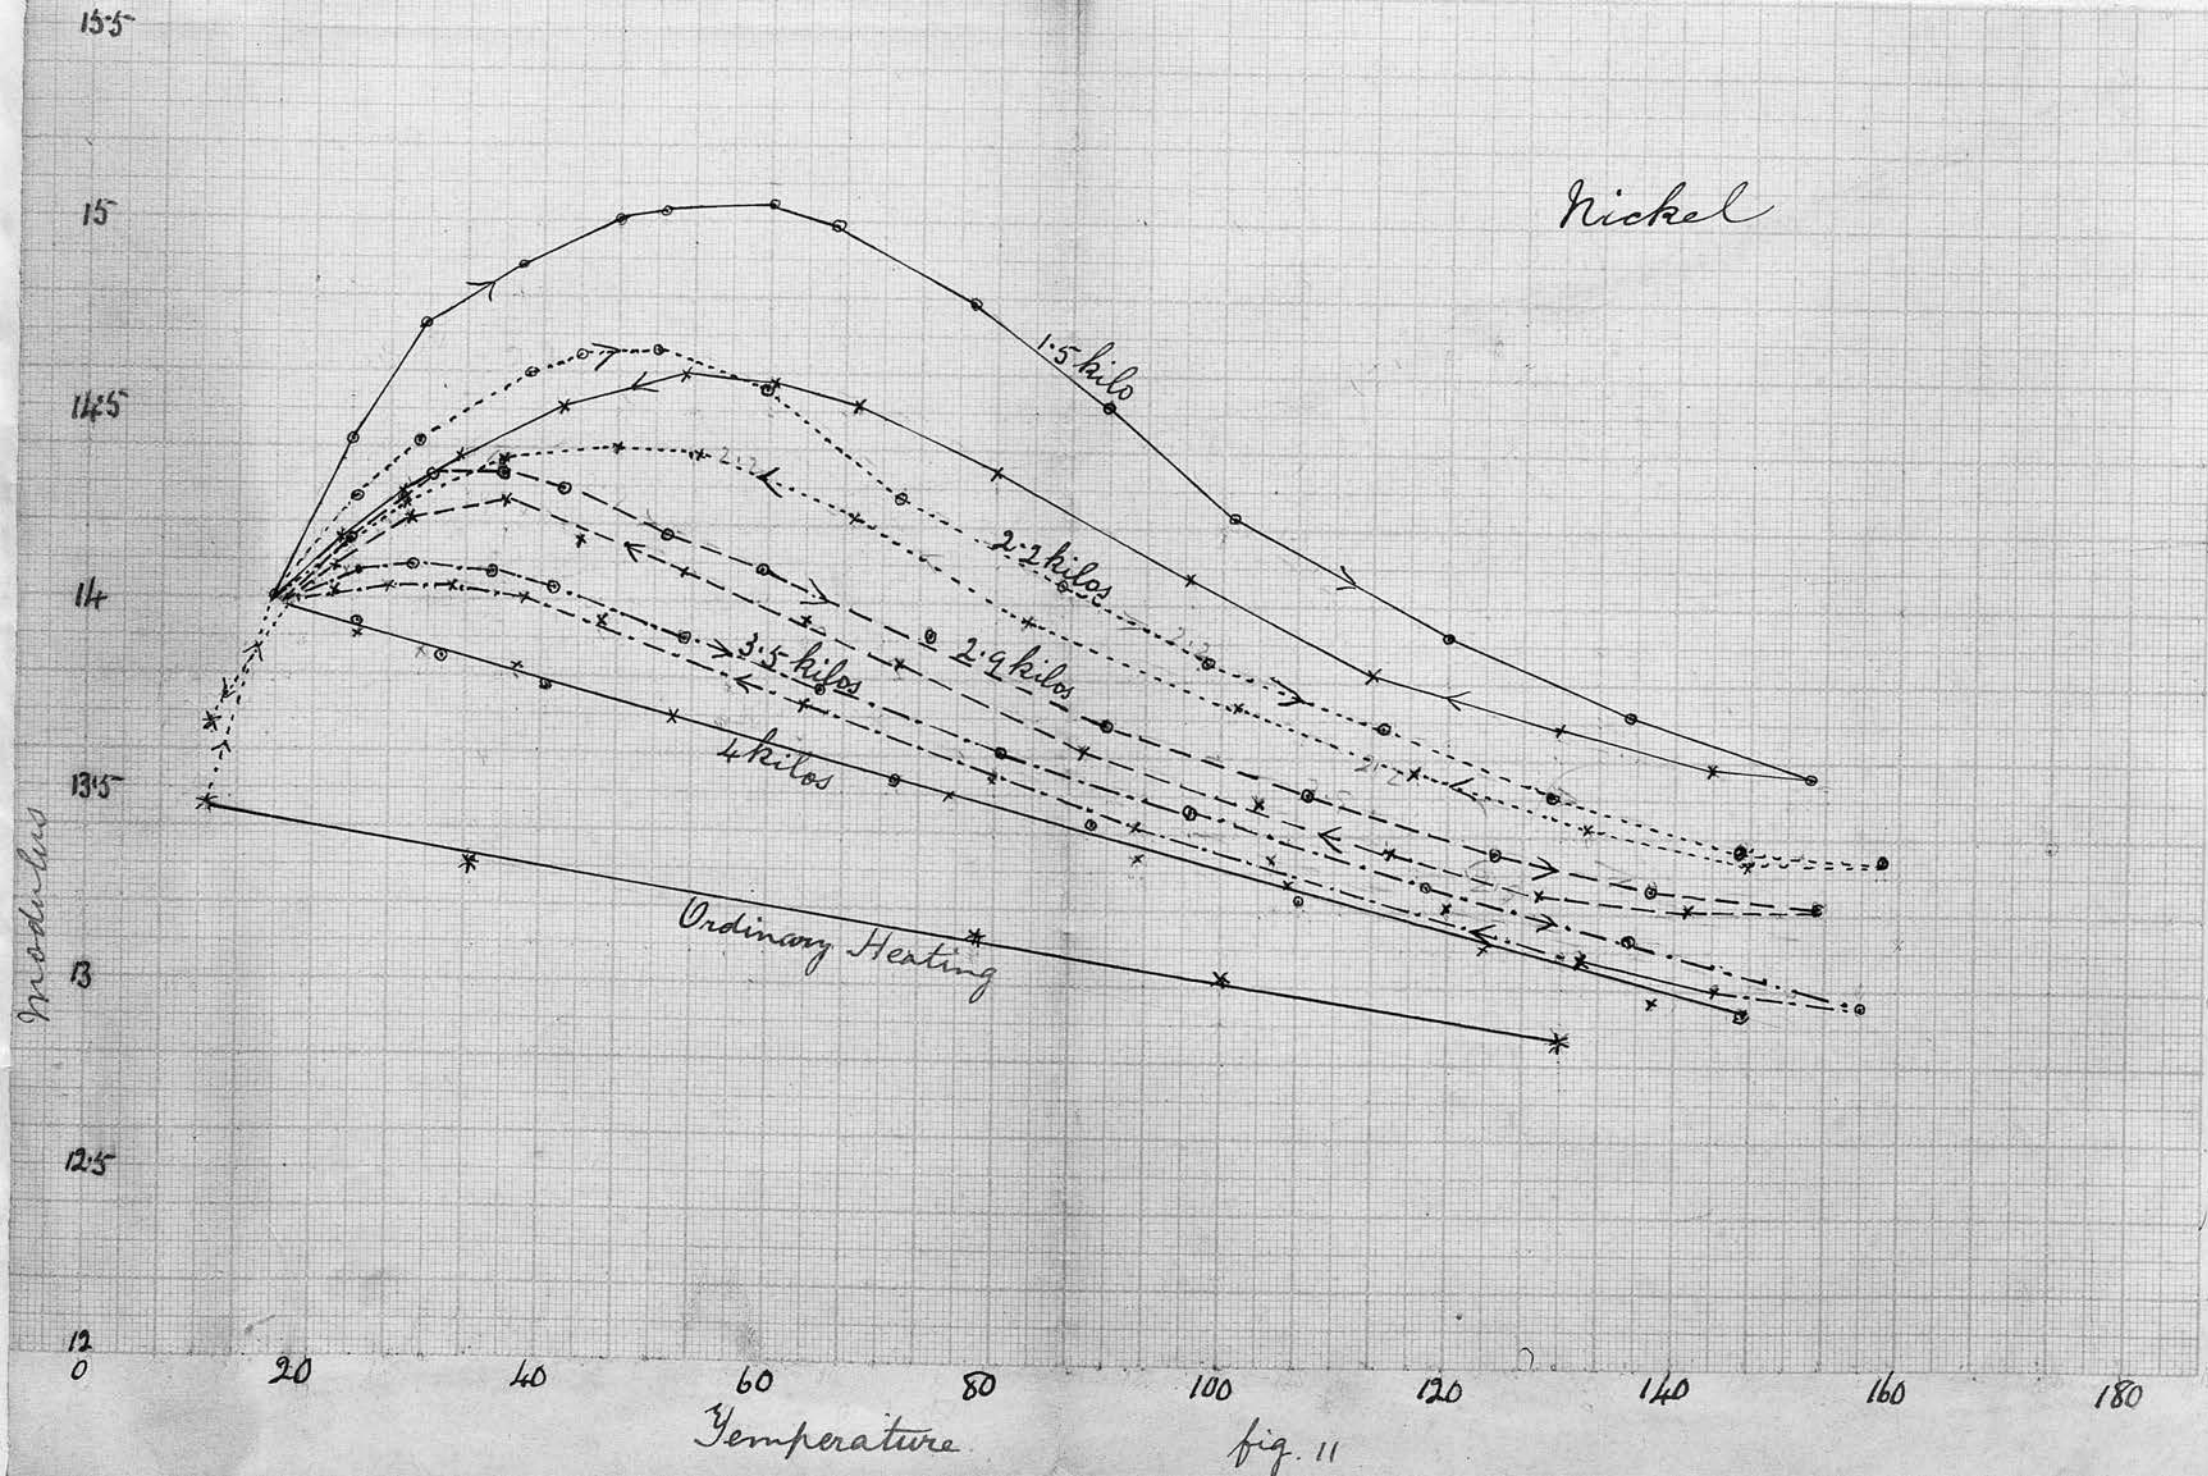 15·5
15
14·5
14
13·5
13
12·5
12
Modulus
Nickel
1·5 kilo
2·2
2·2 kilos
2·2
2·9 kilos
3·5 kilos
2·2
4 kilos
Ordinary Heating
0 20 40 60 80 100 120 140 160 180
Temperature
fig. 11